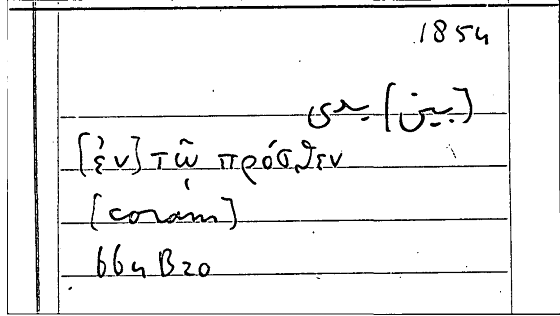 1854
[بين] يدى
[ἐν] τῷ πρόσθεν
[coram]
664 B20